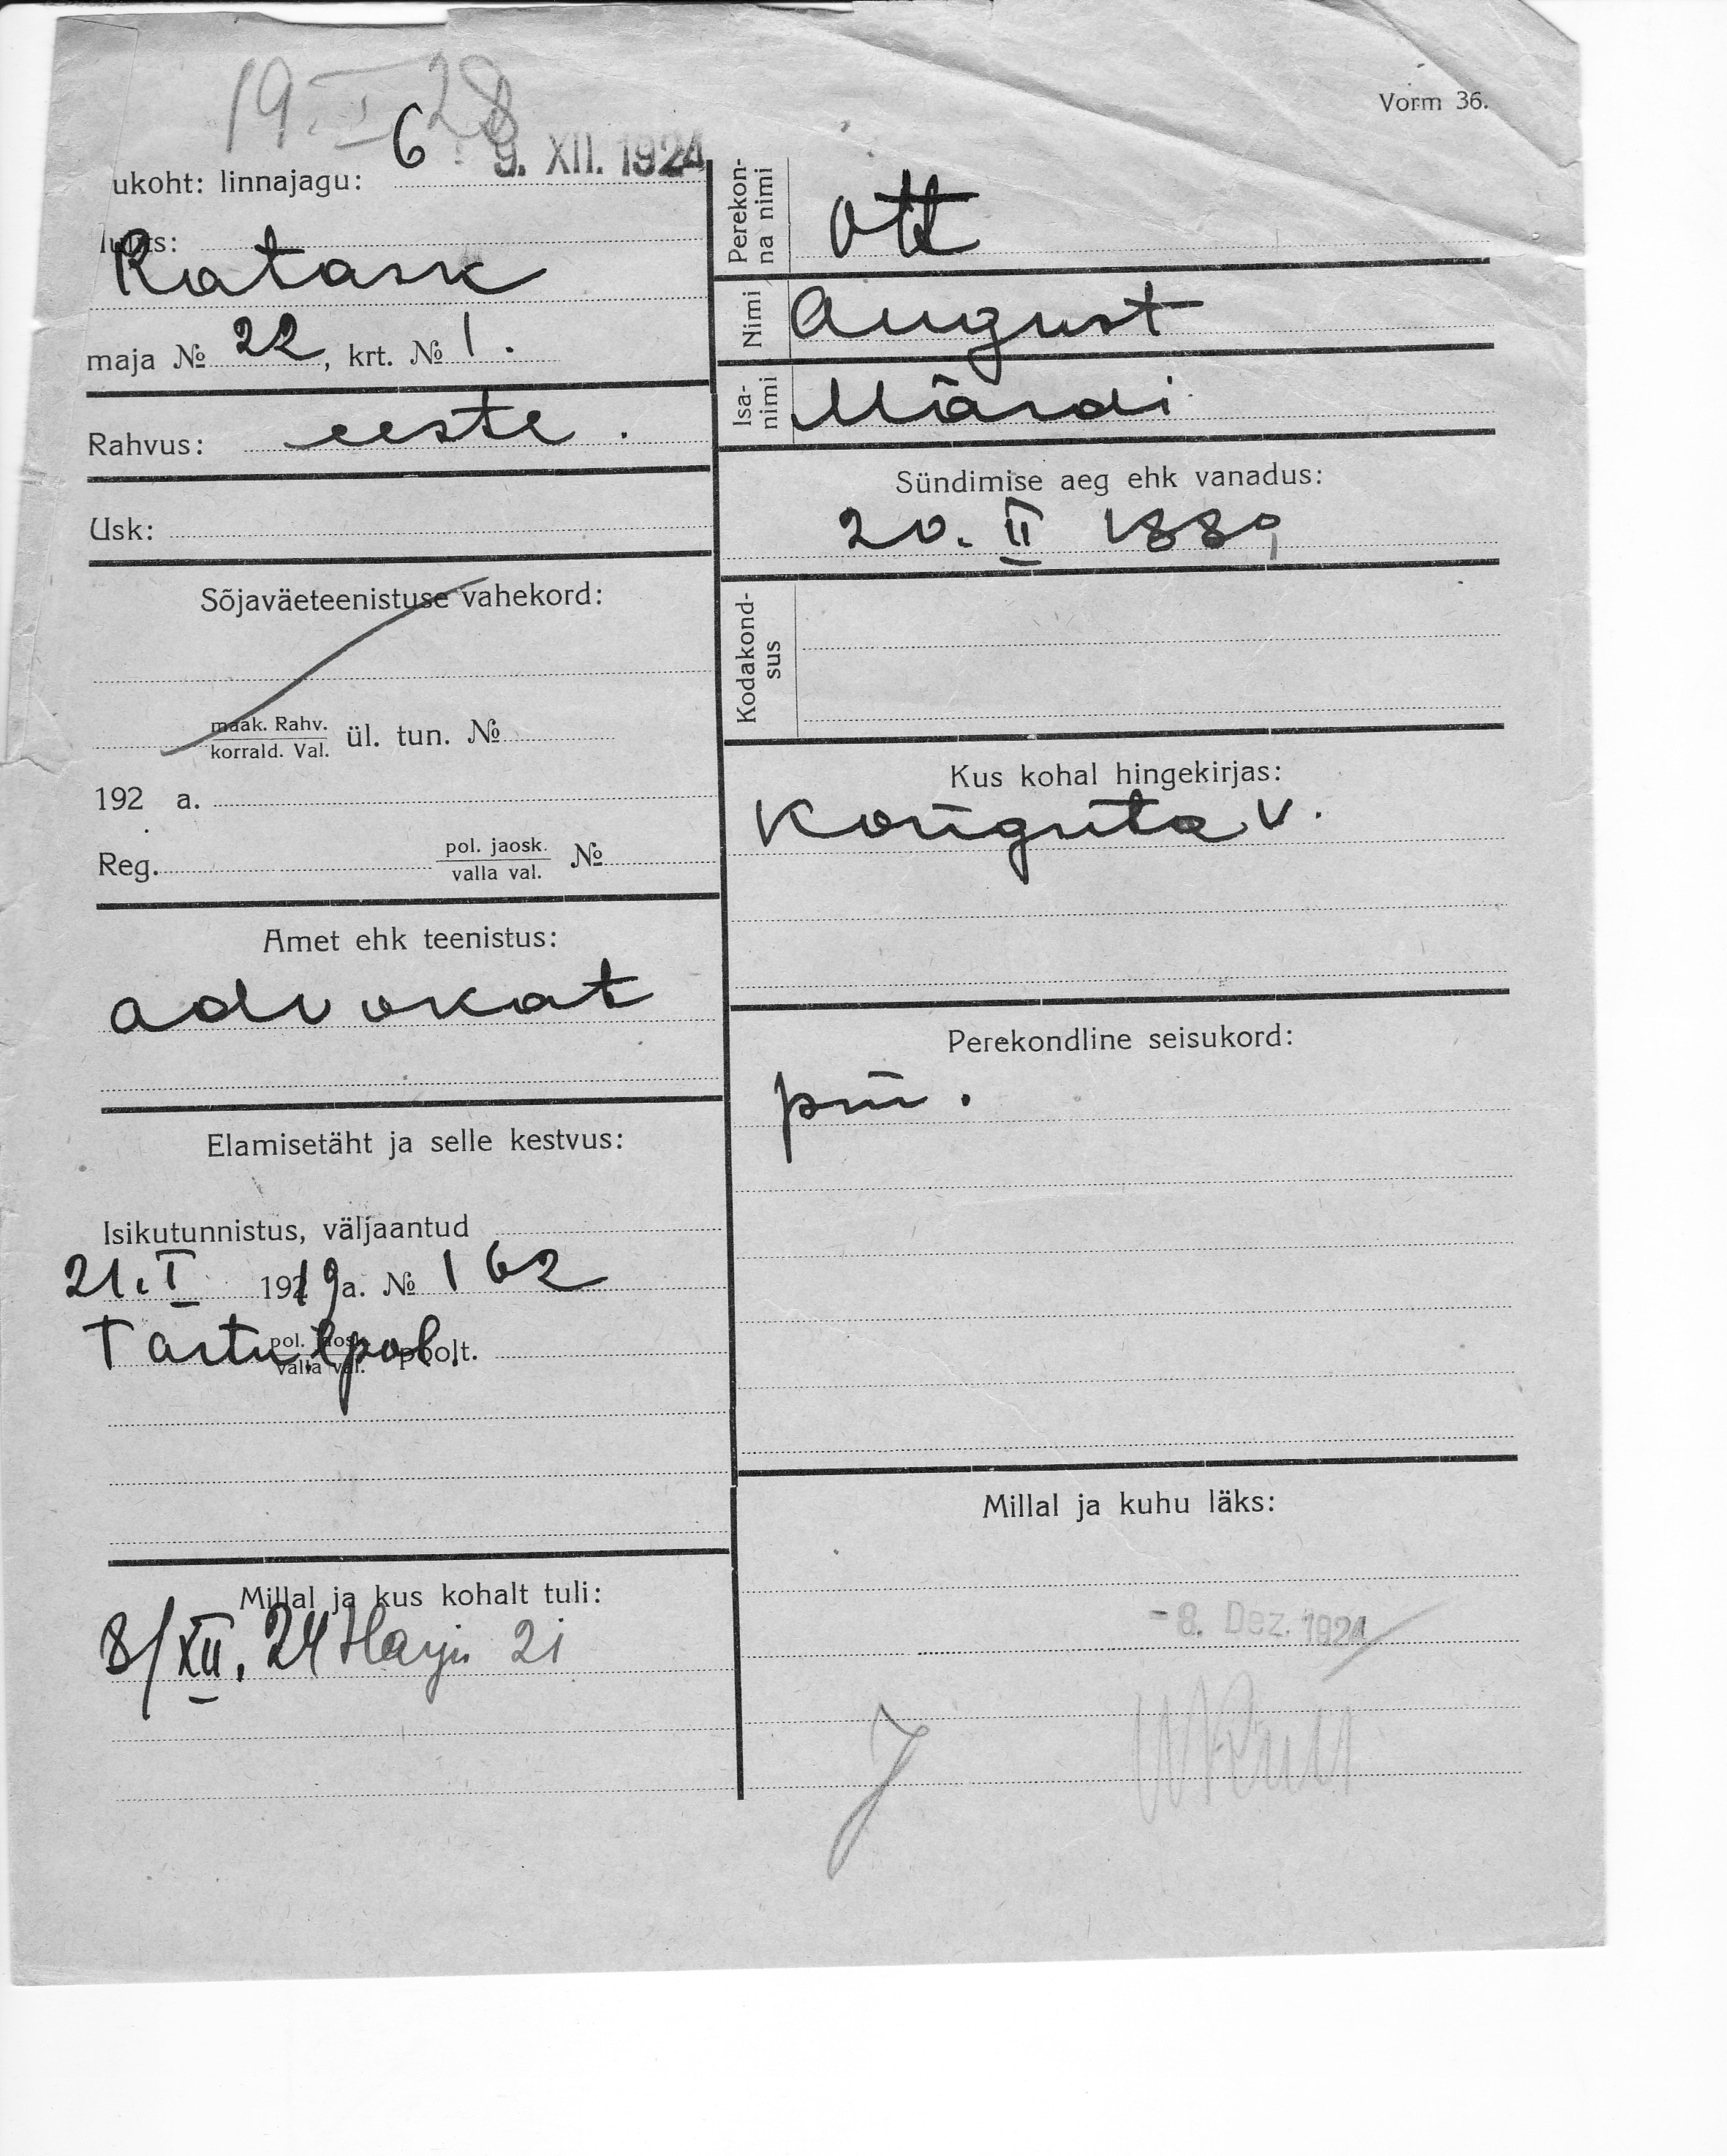 19. I 28
Vorm 36.
6 9. XII. 1924
ukoht: linnajagu:
Ratask
maja № 22, krt. № 1.
Rahvus: eeste.
Usk:
Sõjaväeteenistuse vahekord:
maak. Rahv.
korrald. Val. ül. tun. №
192 a.
Reg. pol. jaosk. №
valla val.
Amet ehk teenistus:
advokat
Elamisetäht ja selle kestvus:
Isikutunnistus, väljaantud
21. I 1919 a. № 162
Tartu lpol. poolt.
pol. jaosk.
valla val.
Millal ja kus kohalt tuli:
8/XII. 24 Harju 21
Perekon-
na nimi
Ott
Nimi August
Isa-
nimi
Märdi
Sündimise aeg ehk vanadus:
20. II 1889
Kodakond-
sus
Kus kohal hingekirjas:
Konguta v.
Perekondline seisukord:
Millal ja kuhu läks:
- 8. Dez. 1924